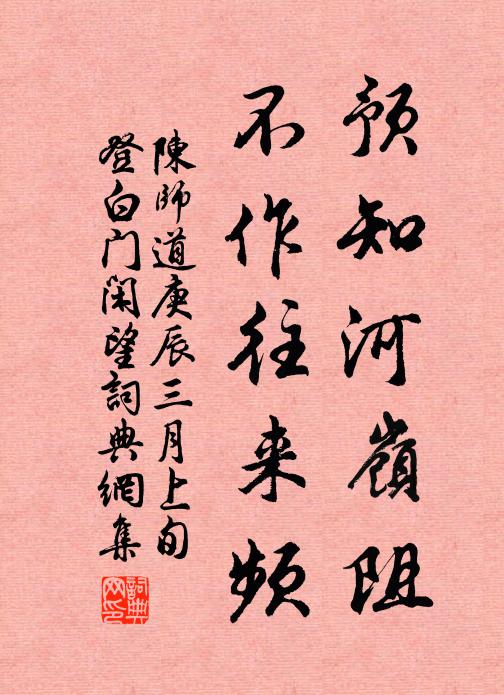 預知河嶺阻
不作往来頻
陳師道庚辰三月上旬
登白门閑望詞典網集
詞典网印